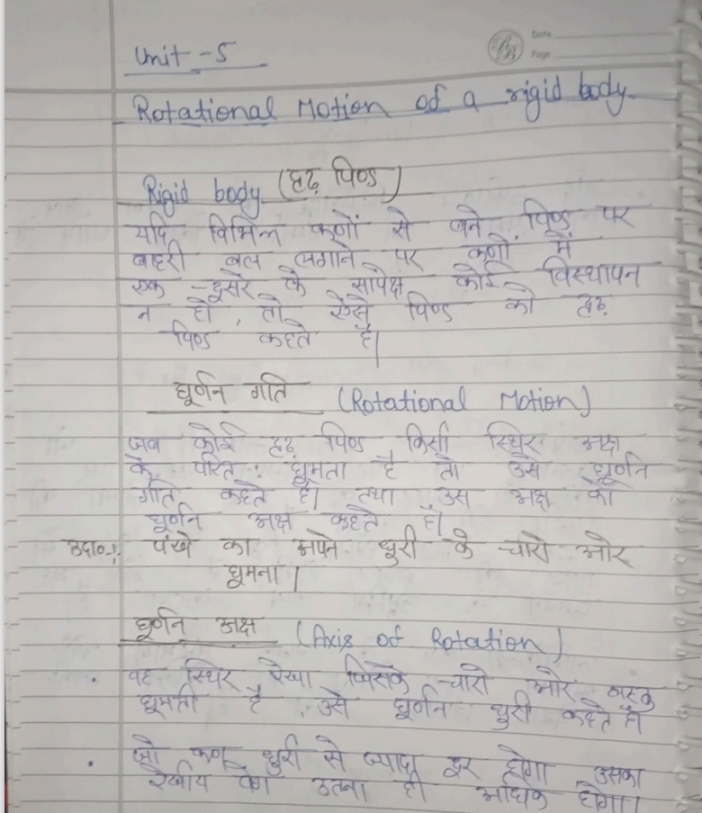 Date
Page
Unit - 5
Rotational Motion of a rigid body
Rigid body (दृढ़ पिण्ड)
यदि विभिन्न कणों से बने पिण्ड पर
बहरी बल लगाने पर कणों में
एक - दूसरे के सापेक्ष कोई विस्थापन
न हो, तो ऐसे पिण्ड को दृढ़
पिण्ड कहते है।
घूर्णन गति (Rotational Motion)
जब कोई दृढ़ पिण्ड किसी स्थिर अक्ष
के परितः घुमता है तो उसे घूर्णन
गति कहते है। तथा उस अक्ष को
घूर्णन अक्ष कहते है।
उदा०-: पंखे का अपने धुरी के चारो ओर
घूमना।
घूर्णन अक्ष (Axis of Rotation)
• वह स्थिर रेखा जिसके चारो ओर वस्तु
घूमती है उसे घूर्णन धुरी कहते है।
• जो कण धुरी से ज्यादा दूर होगा उसका
रेखीय वेग उतना ही अधिक होगा।